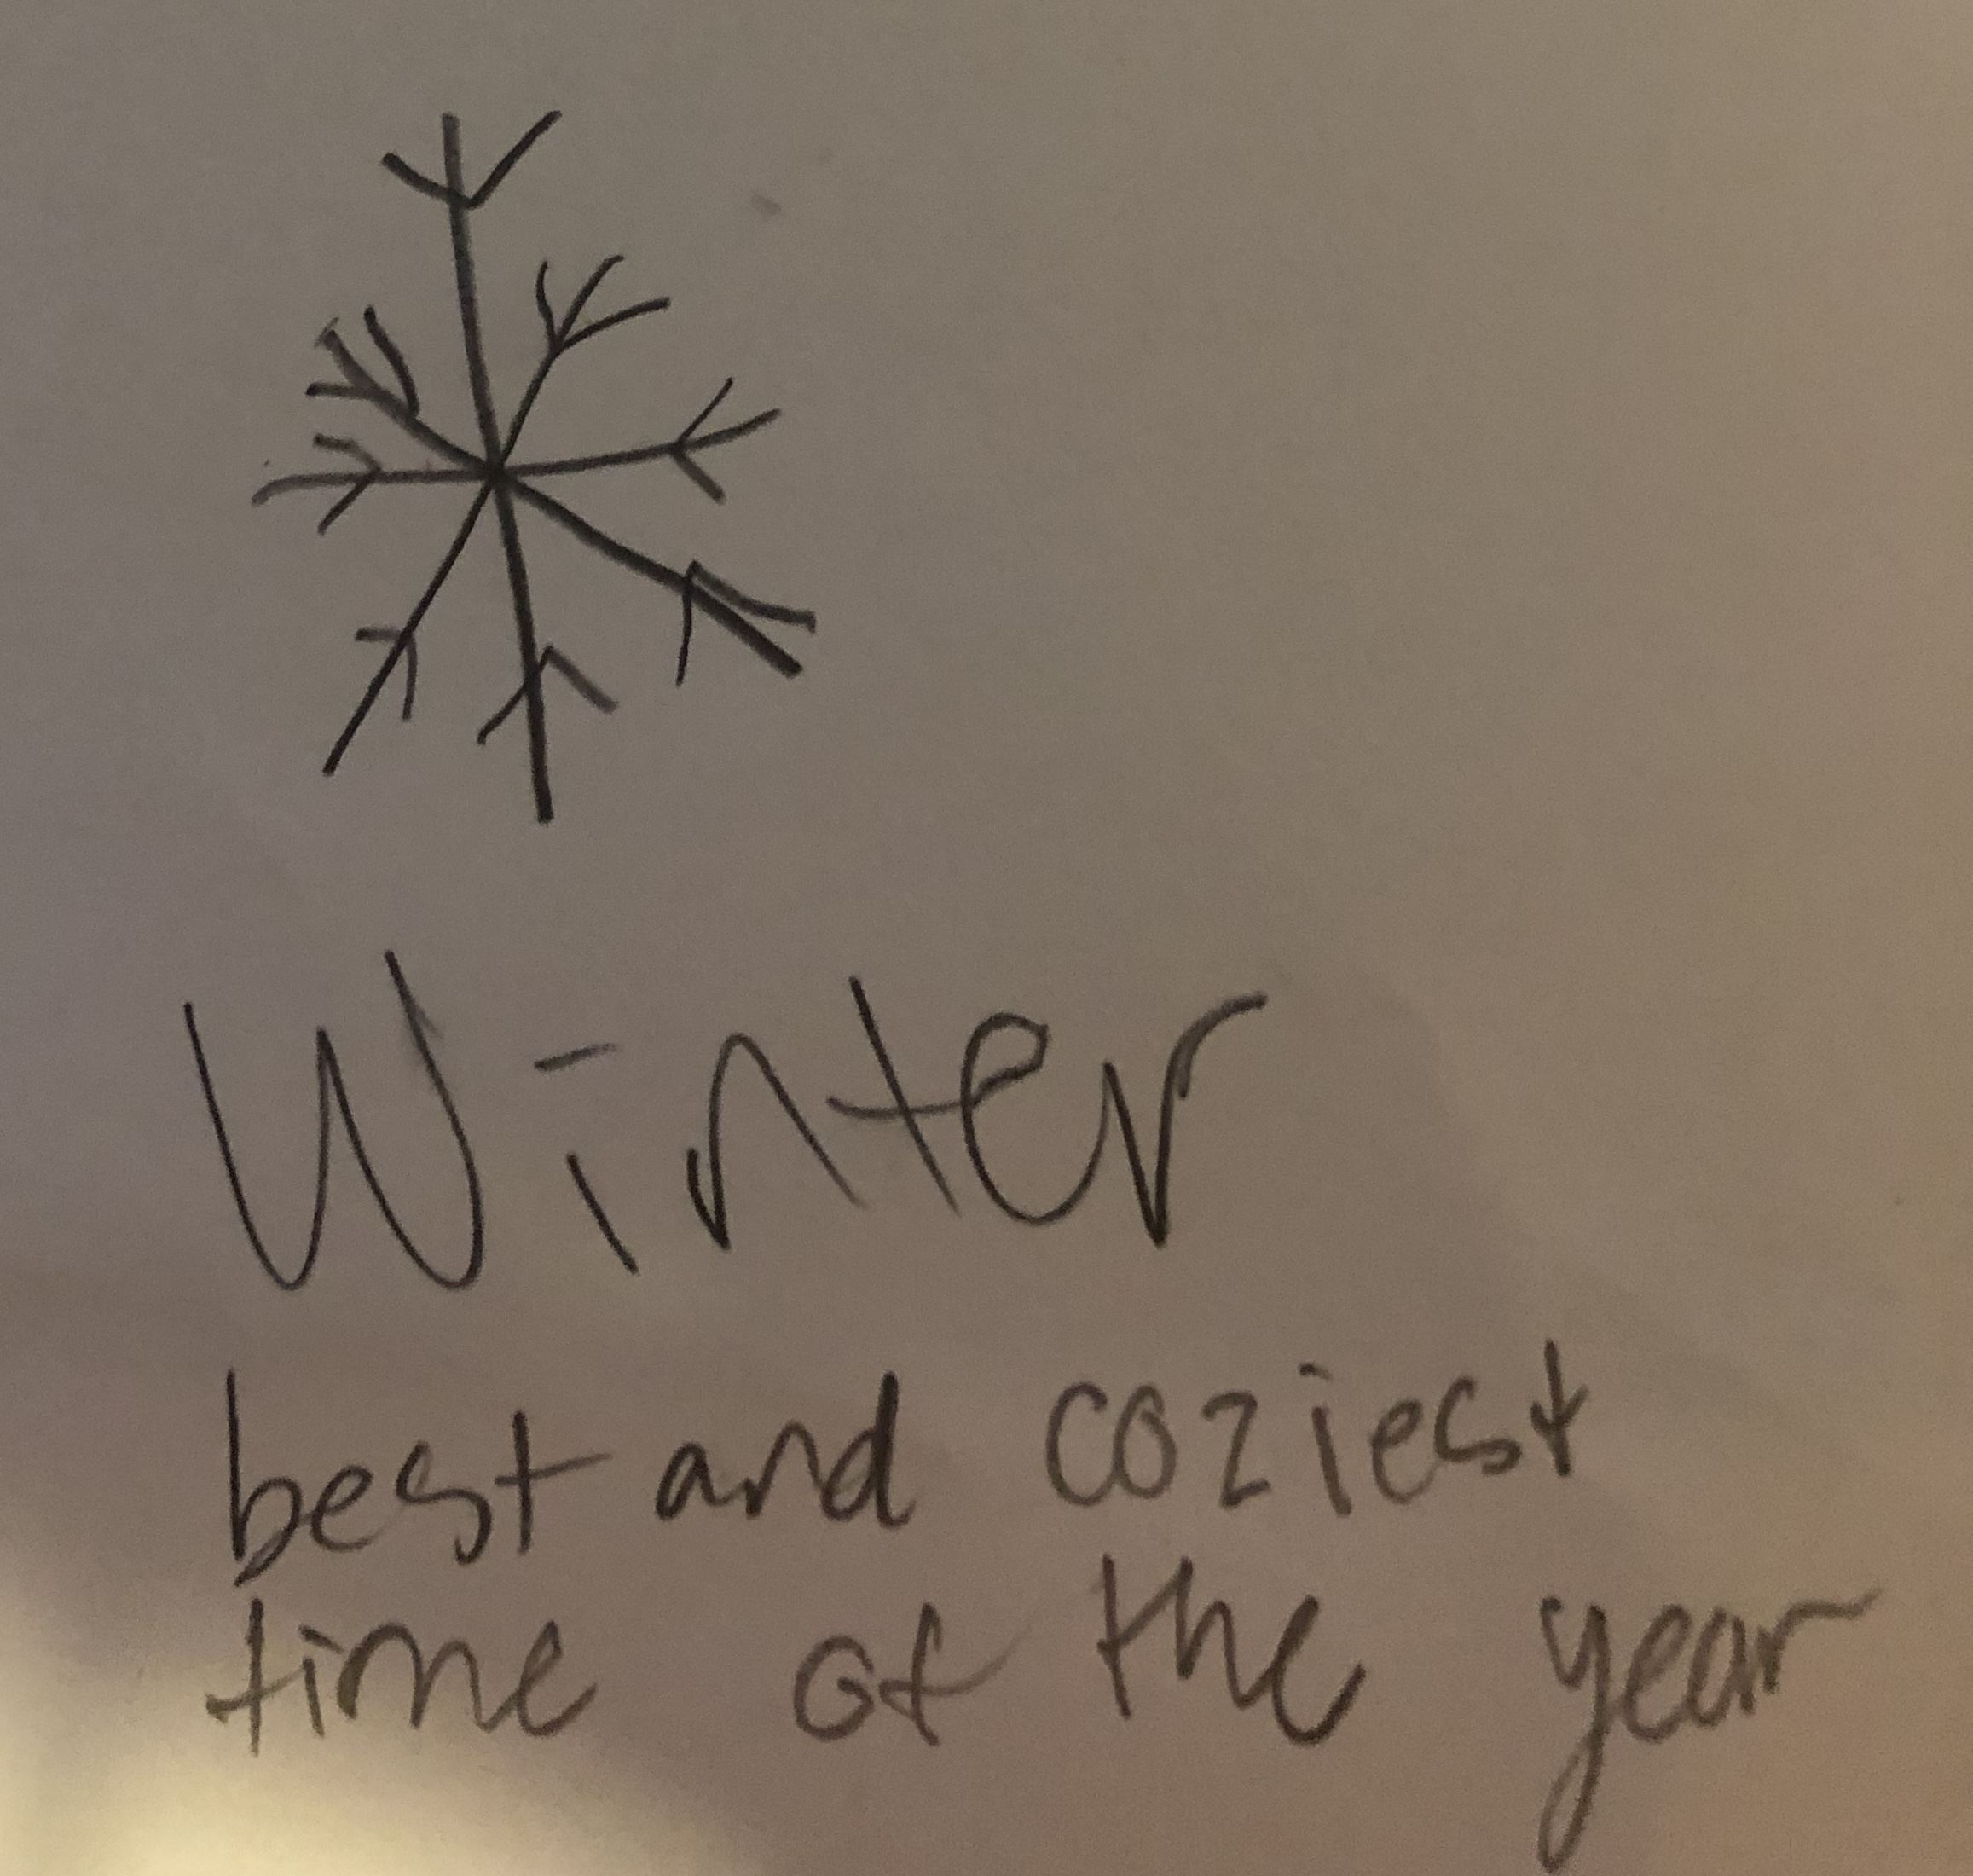 Winter
best and coziest
time of the year